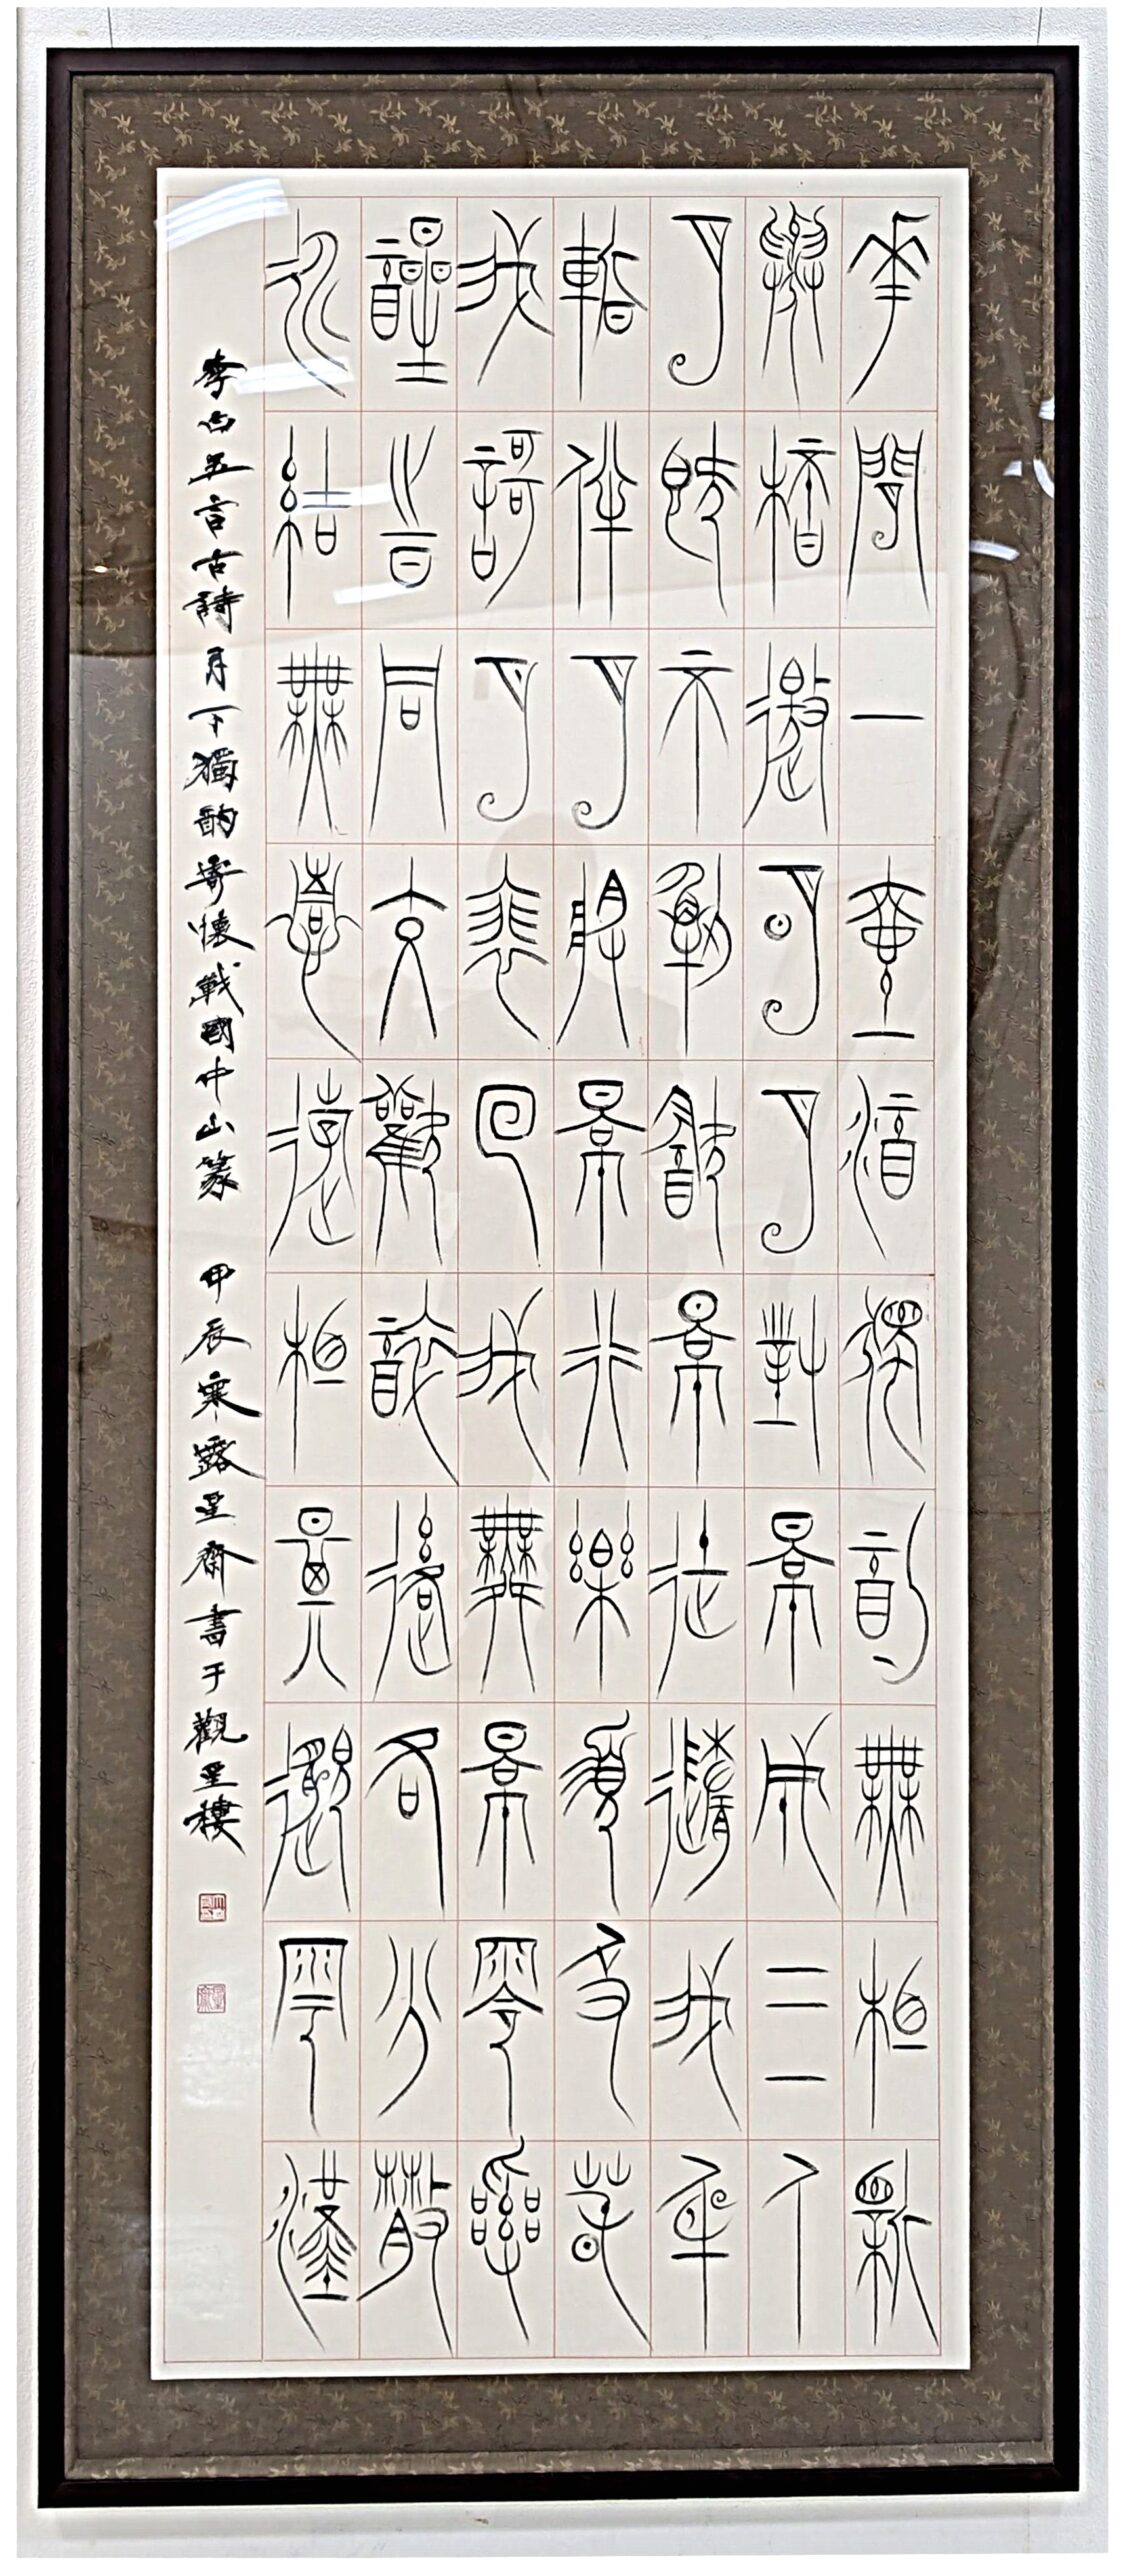 花間一壺酒獨酌無相親
舉杯邀明月對影成三人
月既不解飲影徒隨我身
暫伴月將影行樂須及春
我歌月徘徊我舞影零亂
醒時同交歡醉後各分散
永結無情遊相期邈雲漢
李白五言古詩月下獨酌寄懷戰國中山篆 甲辰寒露星齋書于觀星樓